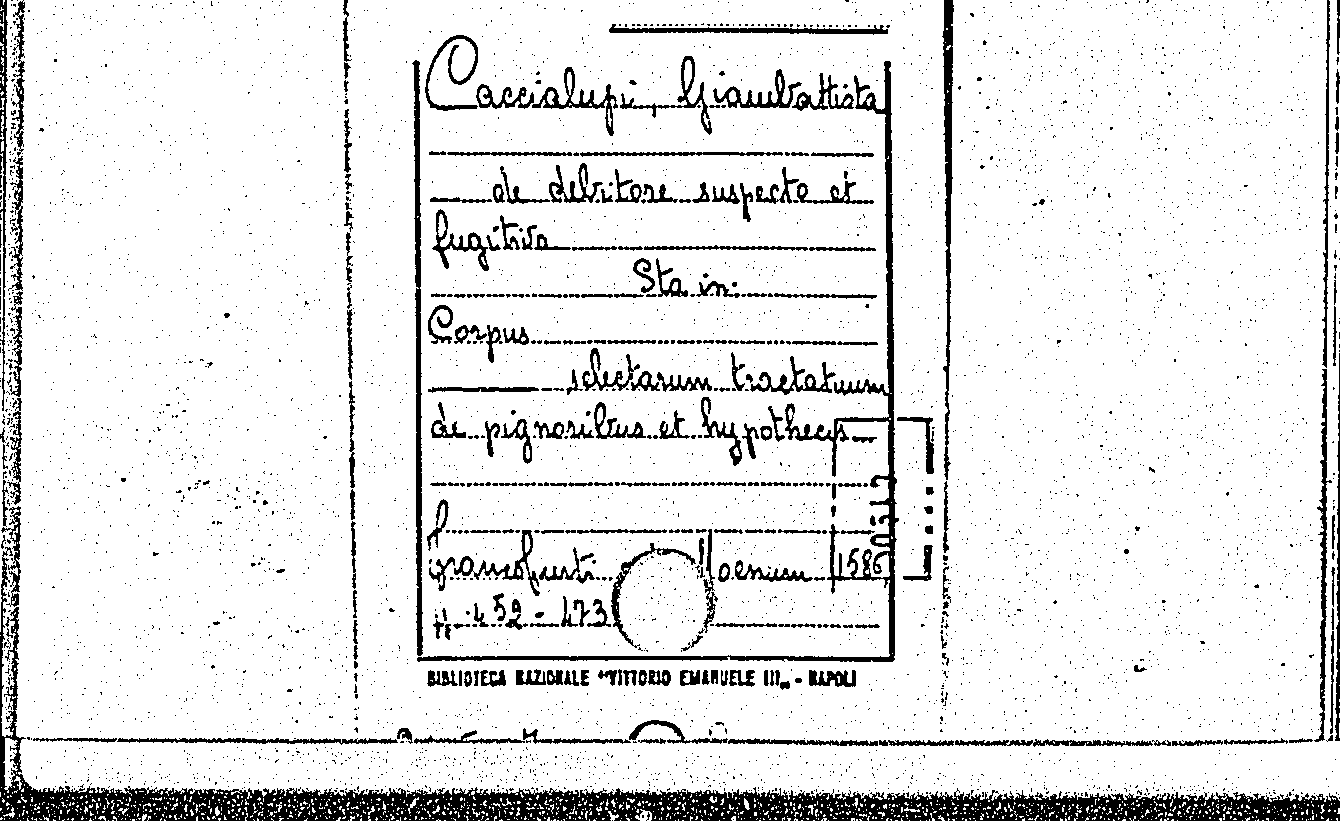 Caccialupi, Giambattista
de debitore suspecto et
fugitivo
Sta in:
Corpus
selectarum tractatuum
de pignoribus et hypothecis
Francofurti Moenum 1586
ff. 452-473
BIBLIOTECA NAZIONALE "VITTORIO EMANUELE III„ - NAPOLI